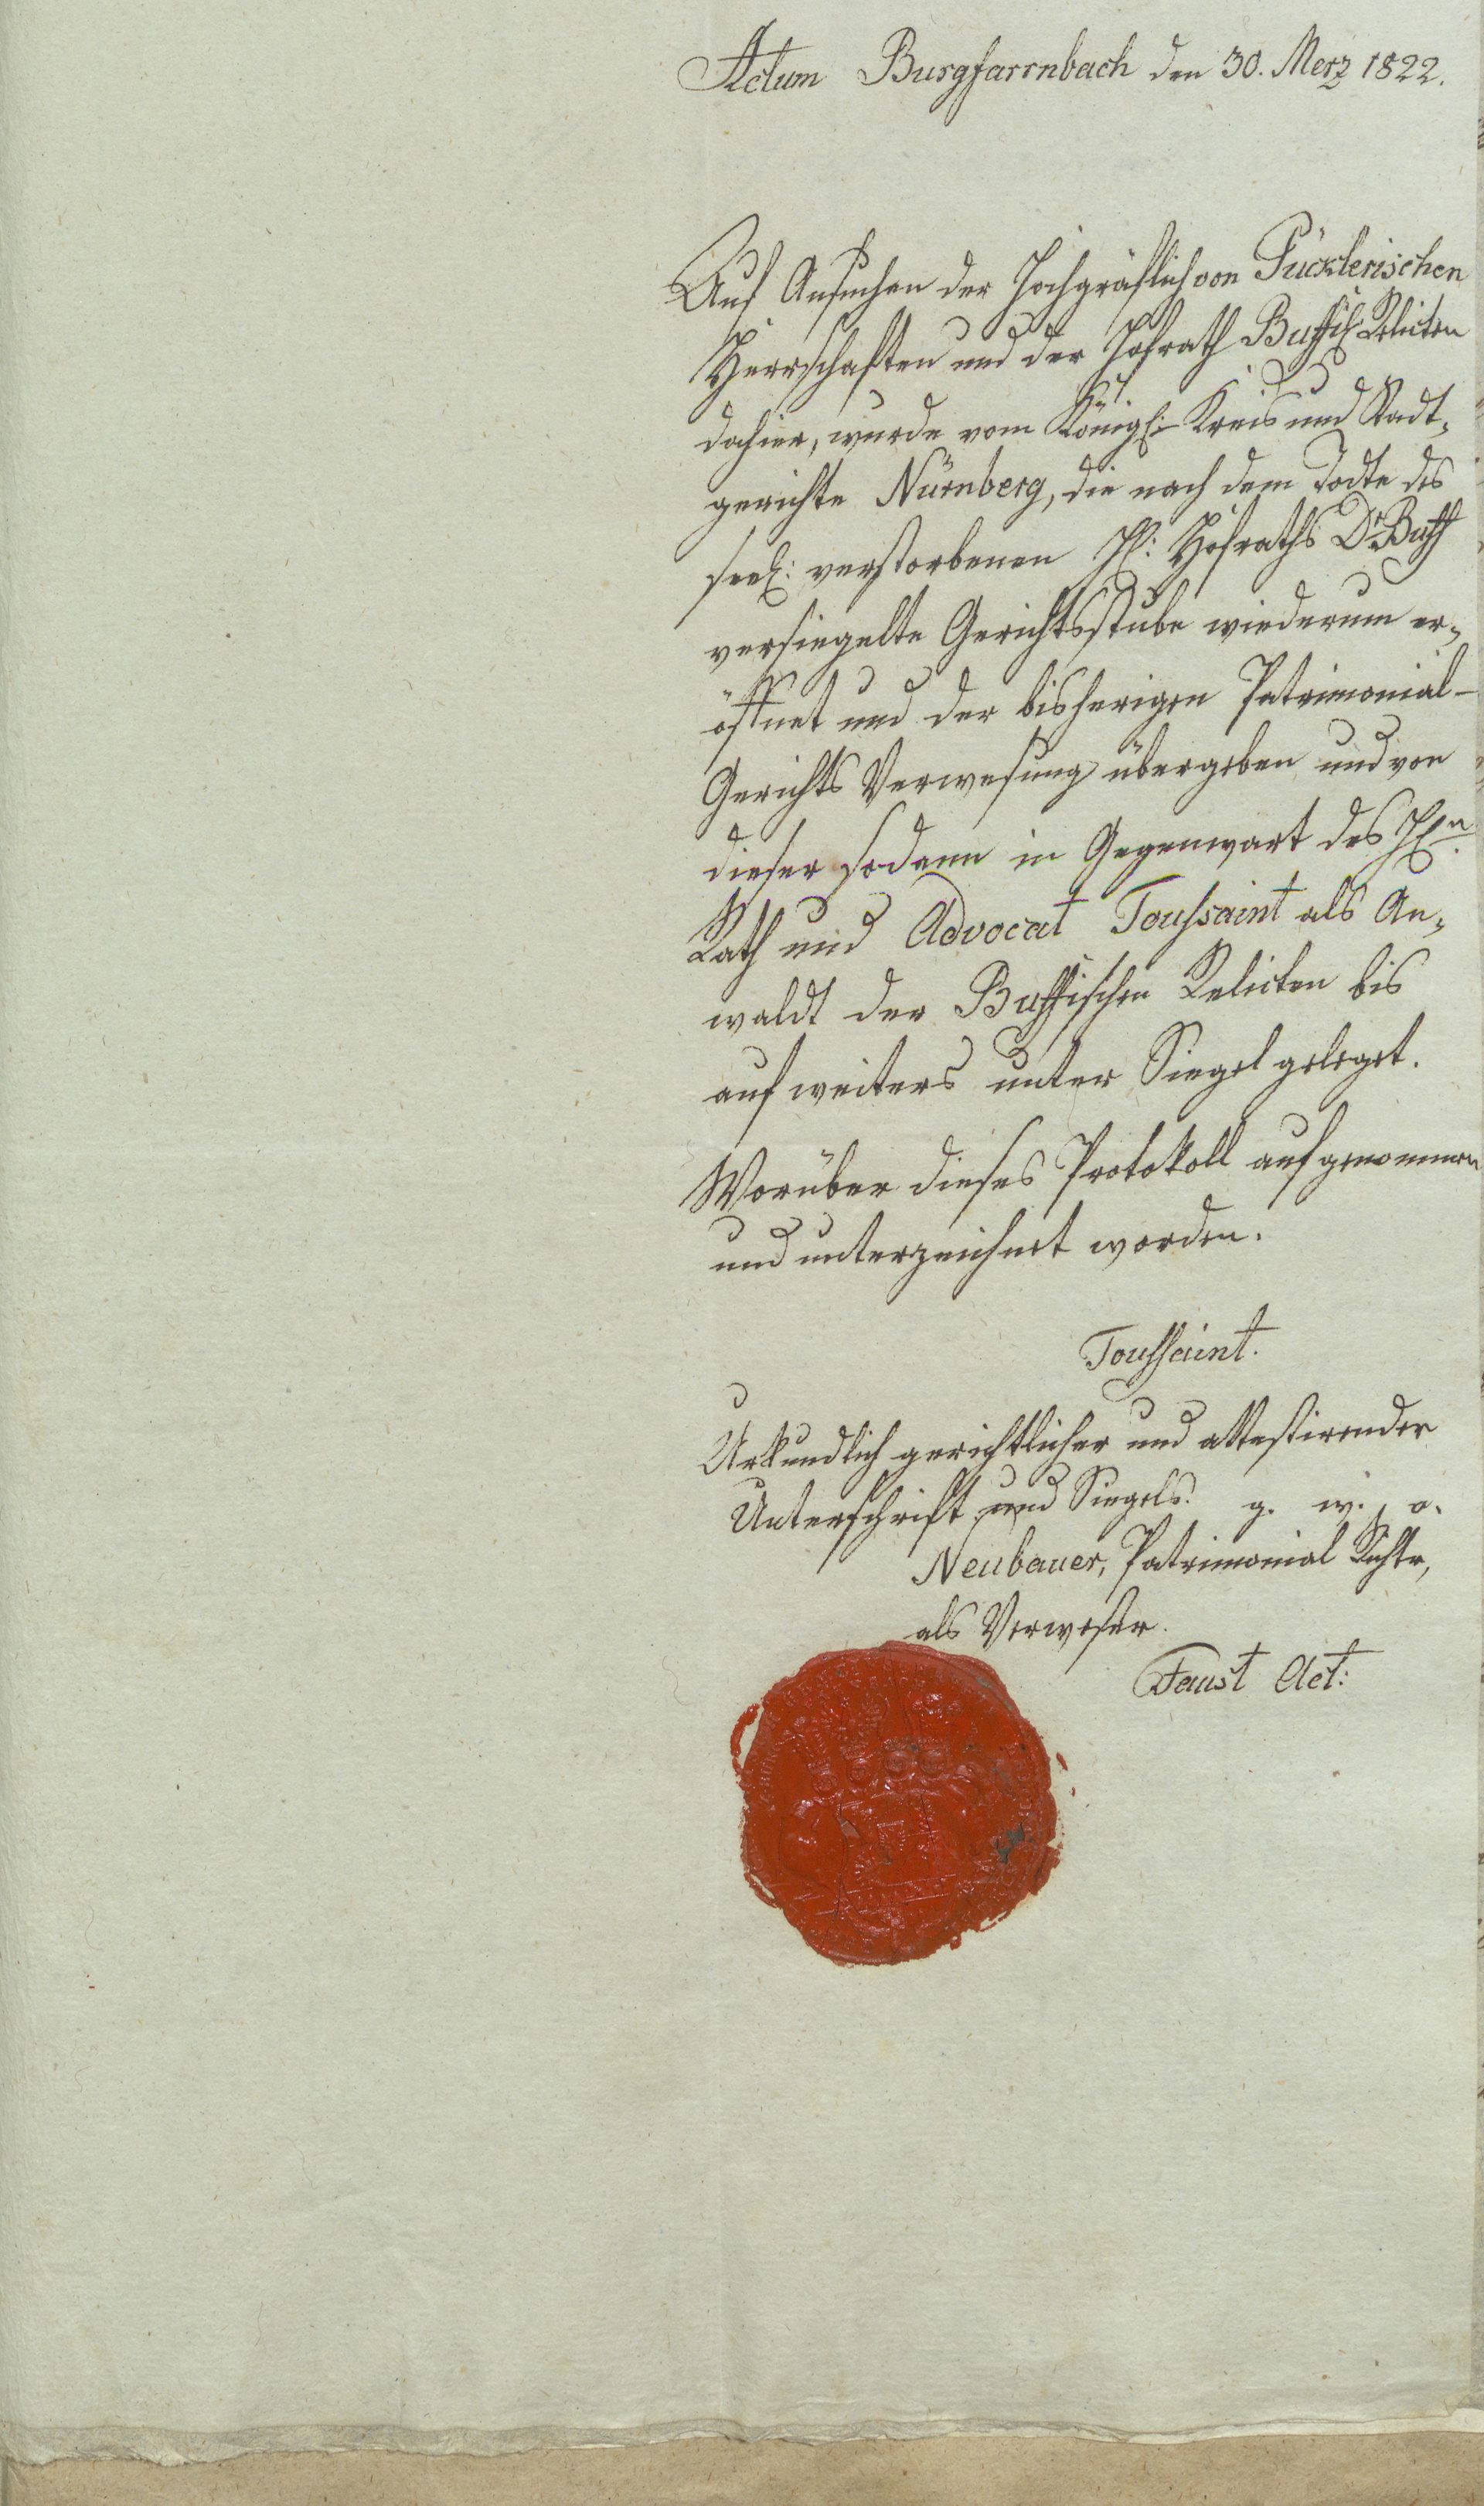 Actum Burgfarrnbach den 30. Merz 1822.
Auf Ansuchen der Hochgräflich von Pücklerischen
Herrschaften und der Hofrath Buffisch Relicten
dahier, wurde vom Königl: Kreis und Stadt„
gerichte Nürnberg, die nach dem Todte des
seel: verstorbenen H: Hofraths Dr Buff
versiegelte Gerichtsstube wiederum er„
öffnet und der bisherigen Patrimonial-
Gerichts Verwesung übergeben und von
dieser sodann in Gegenwart des Hn.
Rath und Advocat Toussaint als An„
waldt der Buffischen Relicten bis
auf weiters unter Siegel geleget.
Worüber dieses Protokoll aufgenommen
und unterzeichnet worden.
Toussaint.
Urkundlich gerichtlicher und attestirender
Unterschrift und Siegels. g. w. o.
Neubauer, Patrimonial Richter,
als Verweser.
Faust Act: